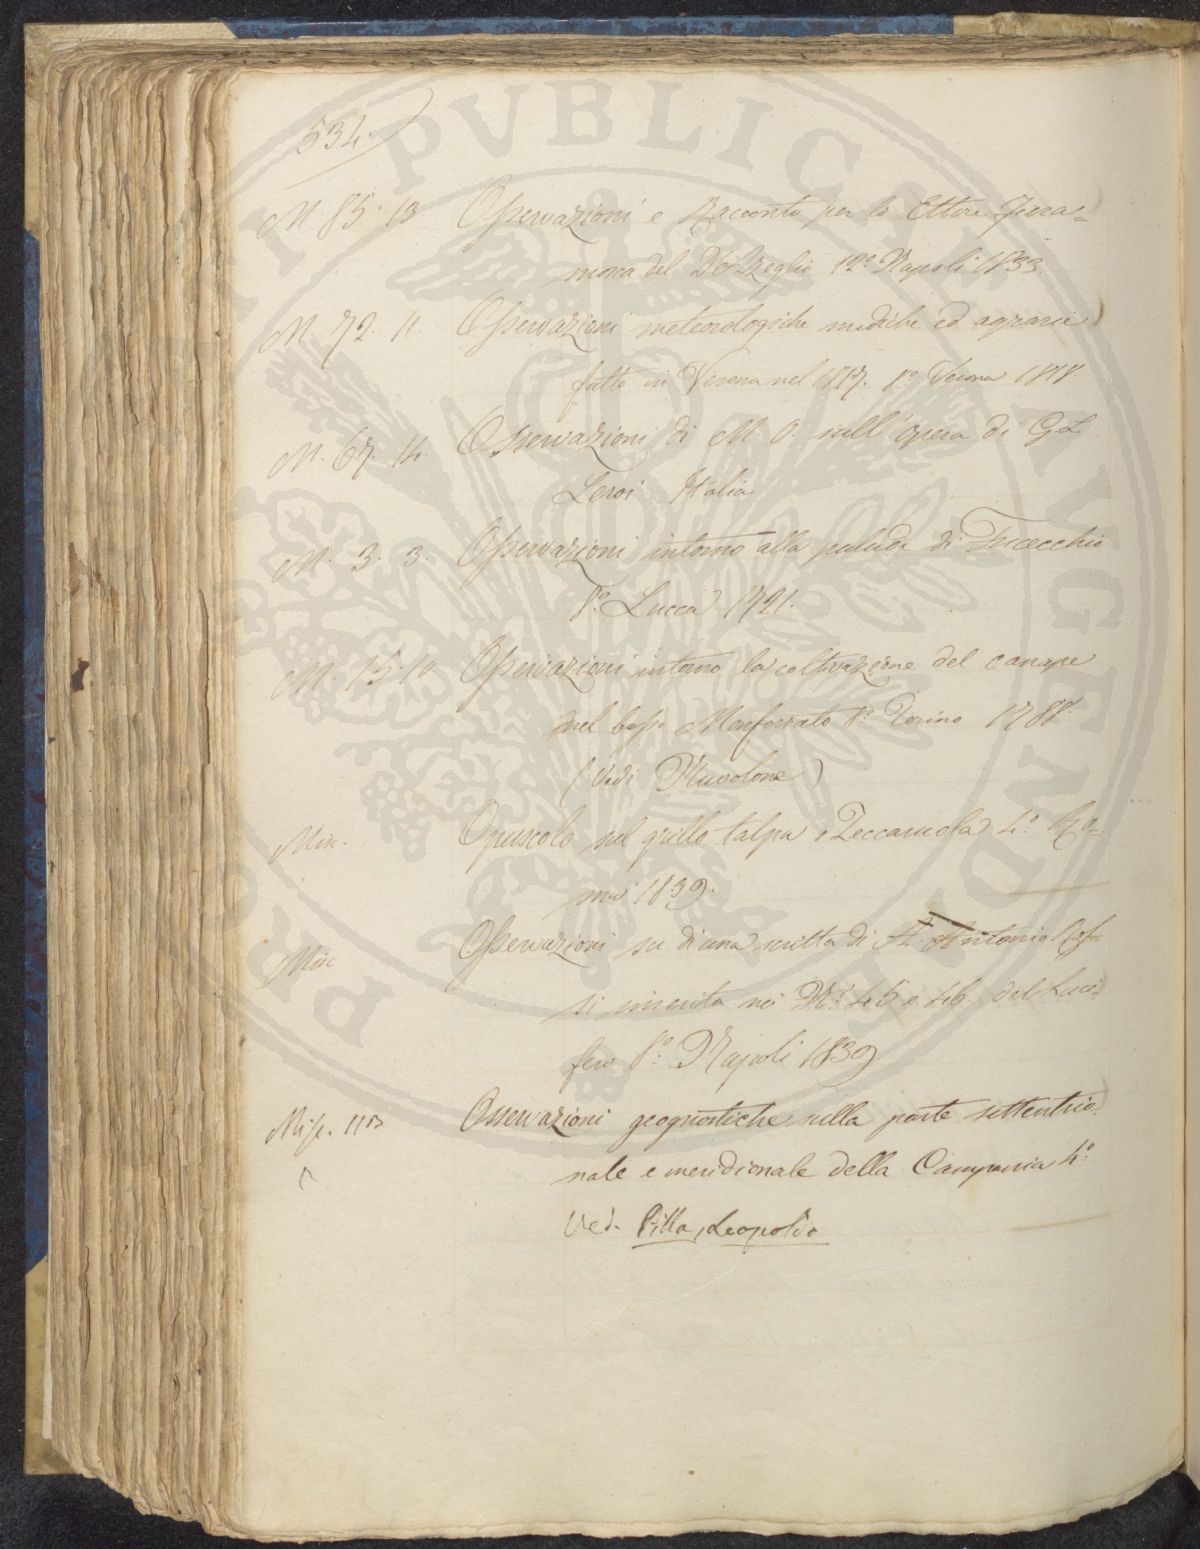 534.
M. 85. 13 Osservazioni e Racconto per lo Ettore Fiera=
mosca del D'Azeglio 12º Napoli 1833.
M. 72. 11. Osservazioni meteorologiche mediche ed agrarie
fatte in Verona nel 1817. 8º Verona 1818
M. 67. 14. Osservazioni di M. O. sull'opera di G. L
Leroi Italia
M. 3. 3. Osservazioni intorno alla palude di Fucecchio
8º Lucca 1721.
M. 15. 10 Osservazioni intorno la coltivazione del canape
nel basso Monferrato 8º Torino 1788.
(Vedi Nuvolone)
Misc. Opuscolo sul grillo talpa o Zeccaruola 4º Ro=
ma 1839.
Misc Osservazioni su di una scritta di Antonio
si inserita nei Nⁱ 45 e 46. del Luci=
fero 8º Napoli 1839
Misc. 113 Osservazioni geognostiche sulla parte settentrio=
nale e meridionale della Campania 4º
Ved. Pilla, Leopoldo
PRO PVBLICAE AVGENDAE